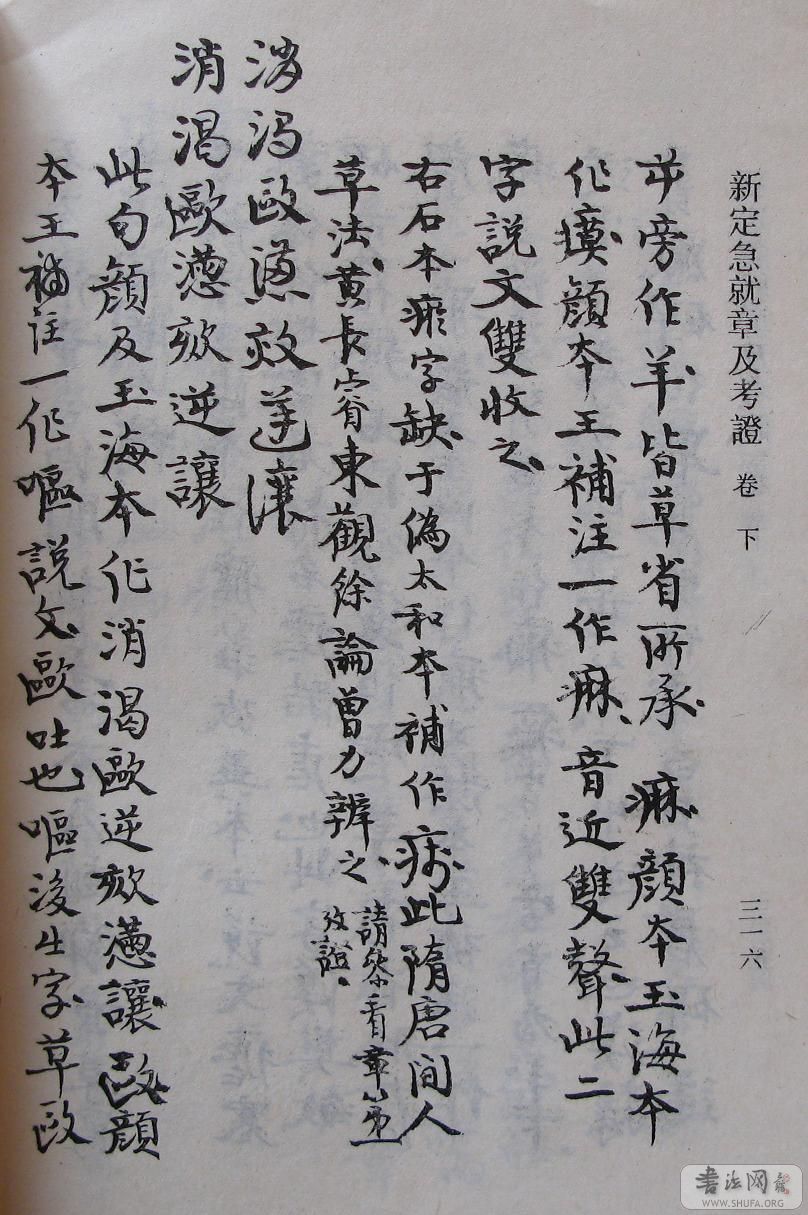 新定急就章及考證 卷下 三一六
屰旁作羊皆草省所承 痳顏本玉海本
作瘼顏本王補注一作痳音近雙聲此二
字說文雙收之
右石本瘀字缺于偽太和本補作瘀此隋唐間人
草法黃長睿東觀餘論曾力辨之 請參看章第一
攷證
消渴歐懣欬逆讓
消渴歐懣欬逆讓
此句顏及玉海本作消渴歐逆欬懣讓 歐顏
本王補注一作嘔說文歐吐也嘔後出字草歐
書法网
WWW.SHUFA.ORG